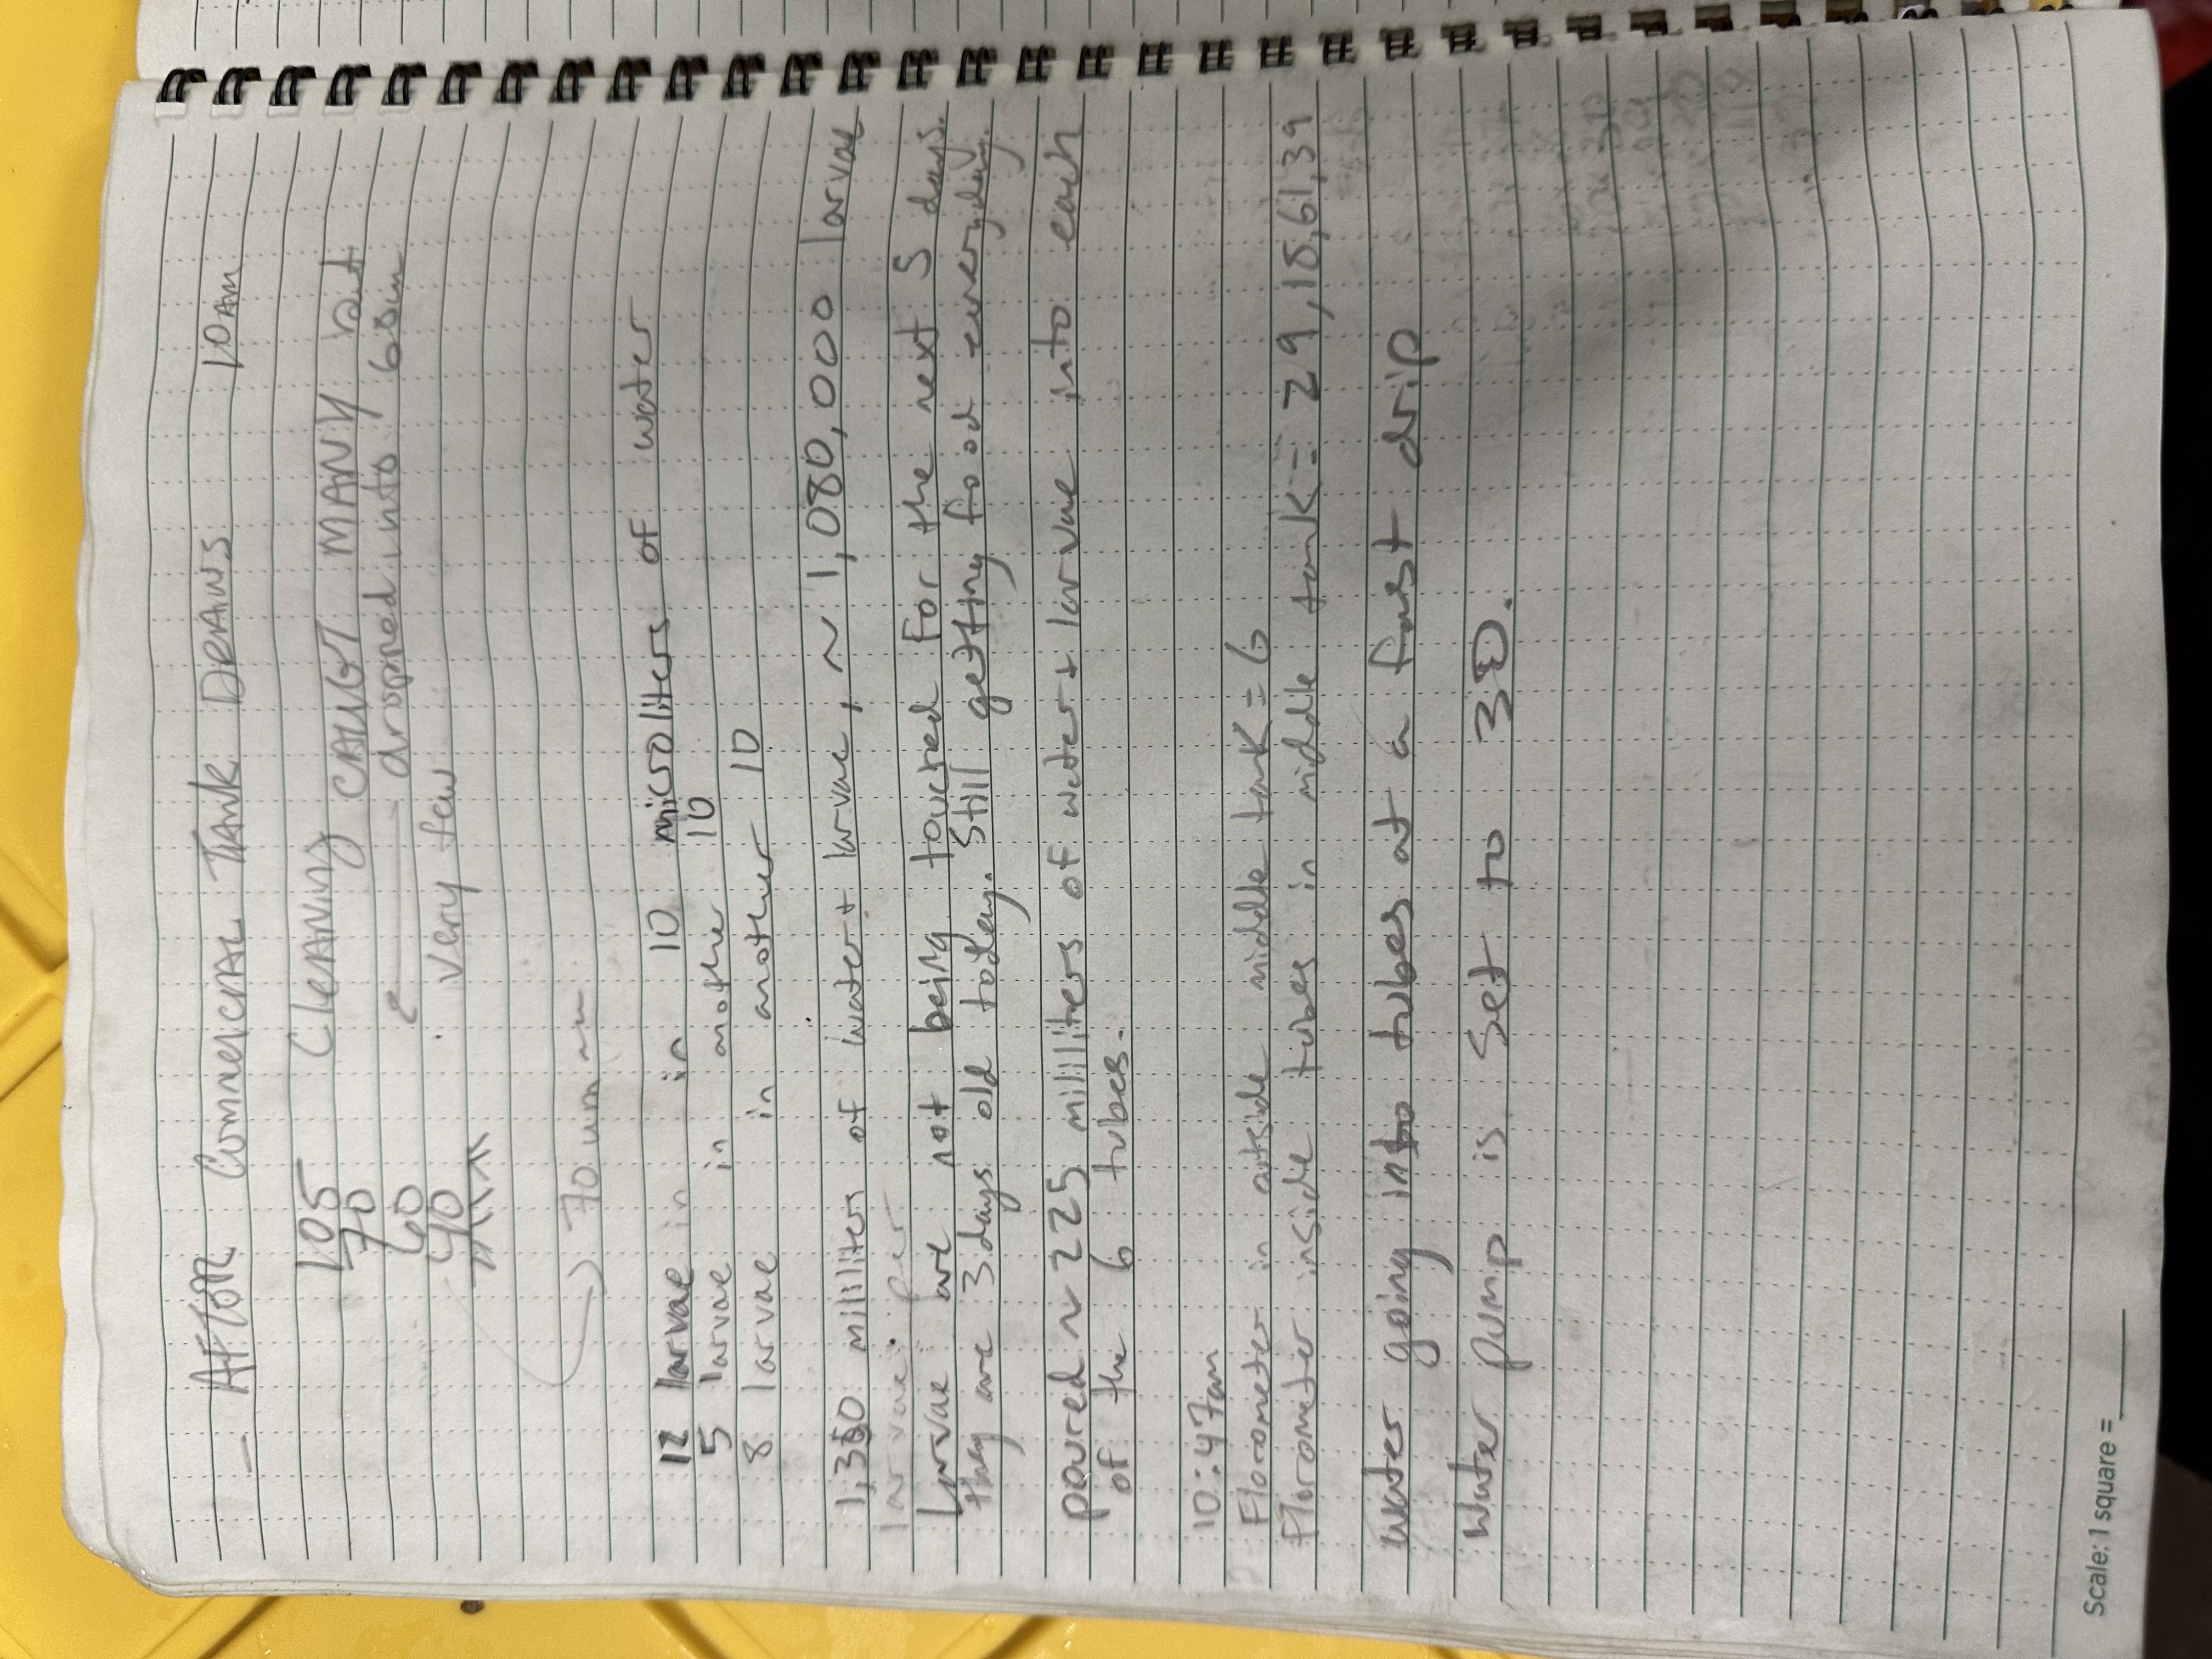 – AFTOR COMMERCIAL TANK DRAWS 10AM
105 CleANING
70 CAUGT MANY but
60 ← dropped into 60um
40 very few
→ 70 um
12 larvae in in 10 microliters of water
5 larvae in another 10
8 larvae in another 10
1,350 mililiters of water + larvae, ~ 1,080,000 larvae
larvae per
Larvae are not being touched for the next 5 days.
they are 3 days old today. Still getting food everyday.
poured ~ 225 mililiters of water + larvae into each
of the 6 tubes.
10:47am
Florometer in outside middle tank = 6
Florometer inside tubes in middle tank = 29, 18, 61, 39
water going into tubes at a fast drip
Water pump is set to 30.
Scale: 1 square =